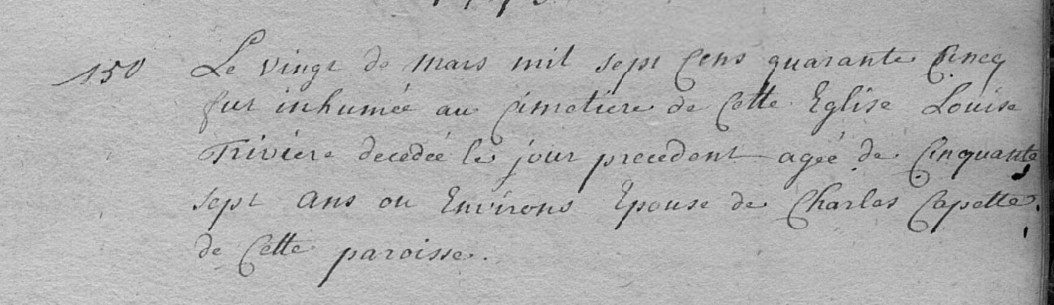 150 Le vingt de mars mil sept cens quarante cincq
fut inhumée au cimetiere de cette Eglise Louise
Triviere decedée le jour precedent agée de cinquante
sept ans ou Environs Epouse de Charles Capette
de cette paroisse.